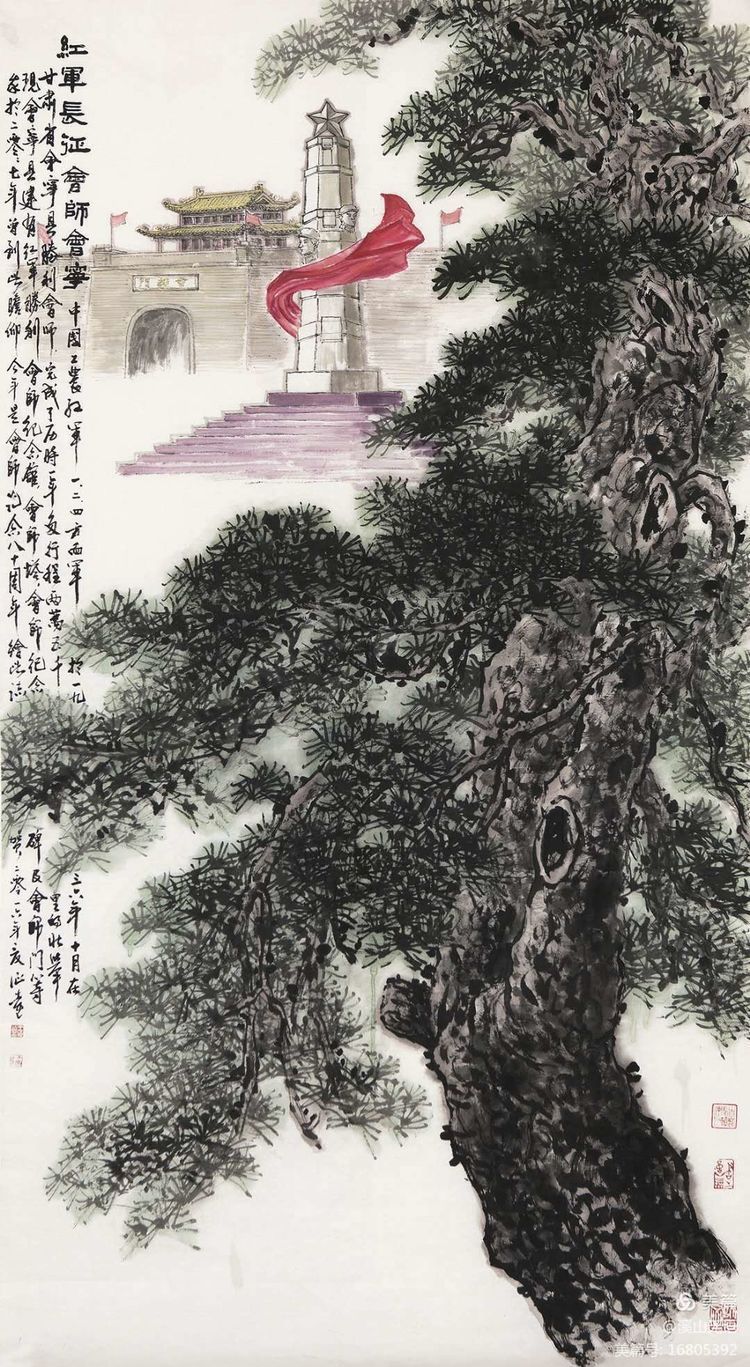 紅軍長征會師會寧
中國工農红軍一二四方面軍於一九三六年十月在
甘肅省會寧县勝利會師完成了历時二年多行程两萬五千里的壯舉
現會寧县建有红軍勝利會師纪念館會師塔會師纪念碑及會师门等
余於二零〇七年曾到此瞻仰今年是會师纪念八十周年绘此誌
贺二零一六年夏征
會師門
美篇
@溪山
美篇号: 16805392